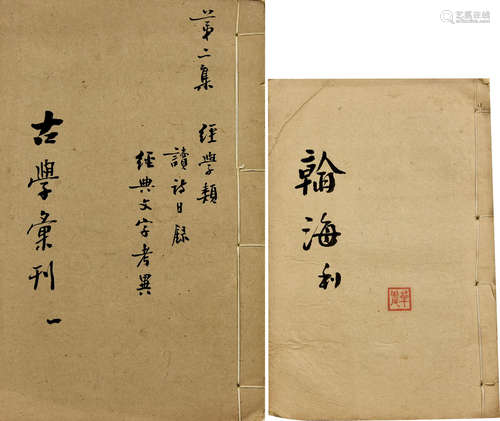 第二集
經學類
讀詩日錄
經典文字考異
古學彙刊 一
翰海利